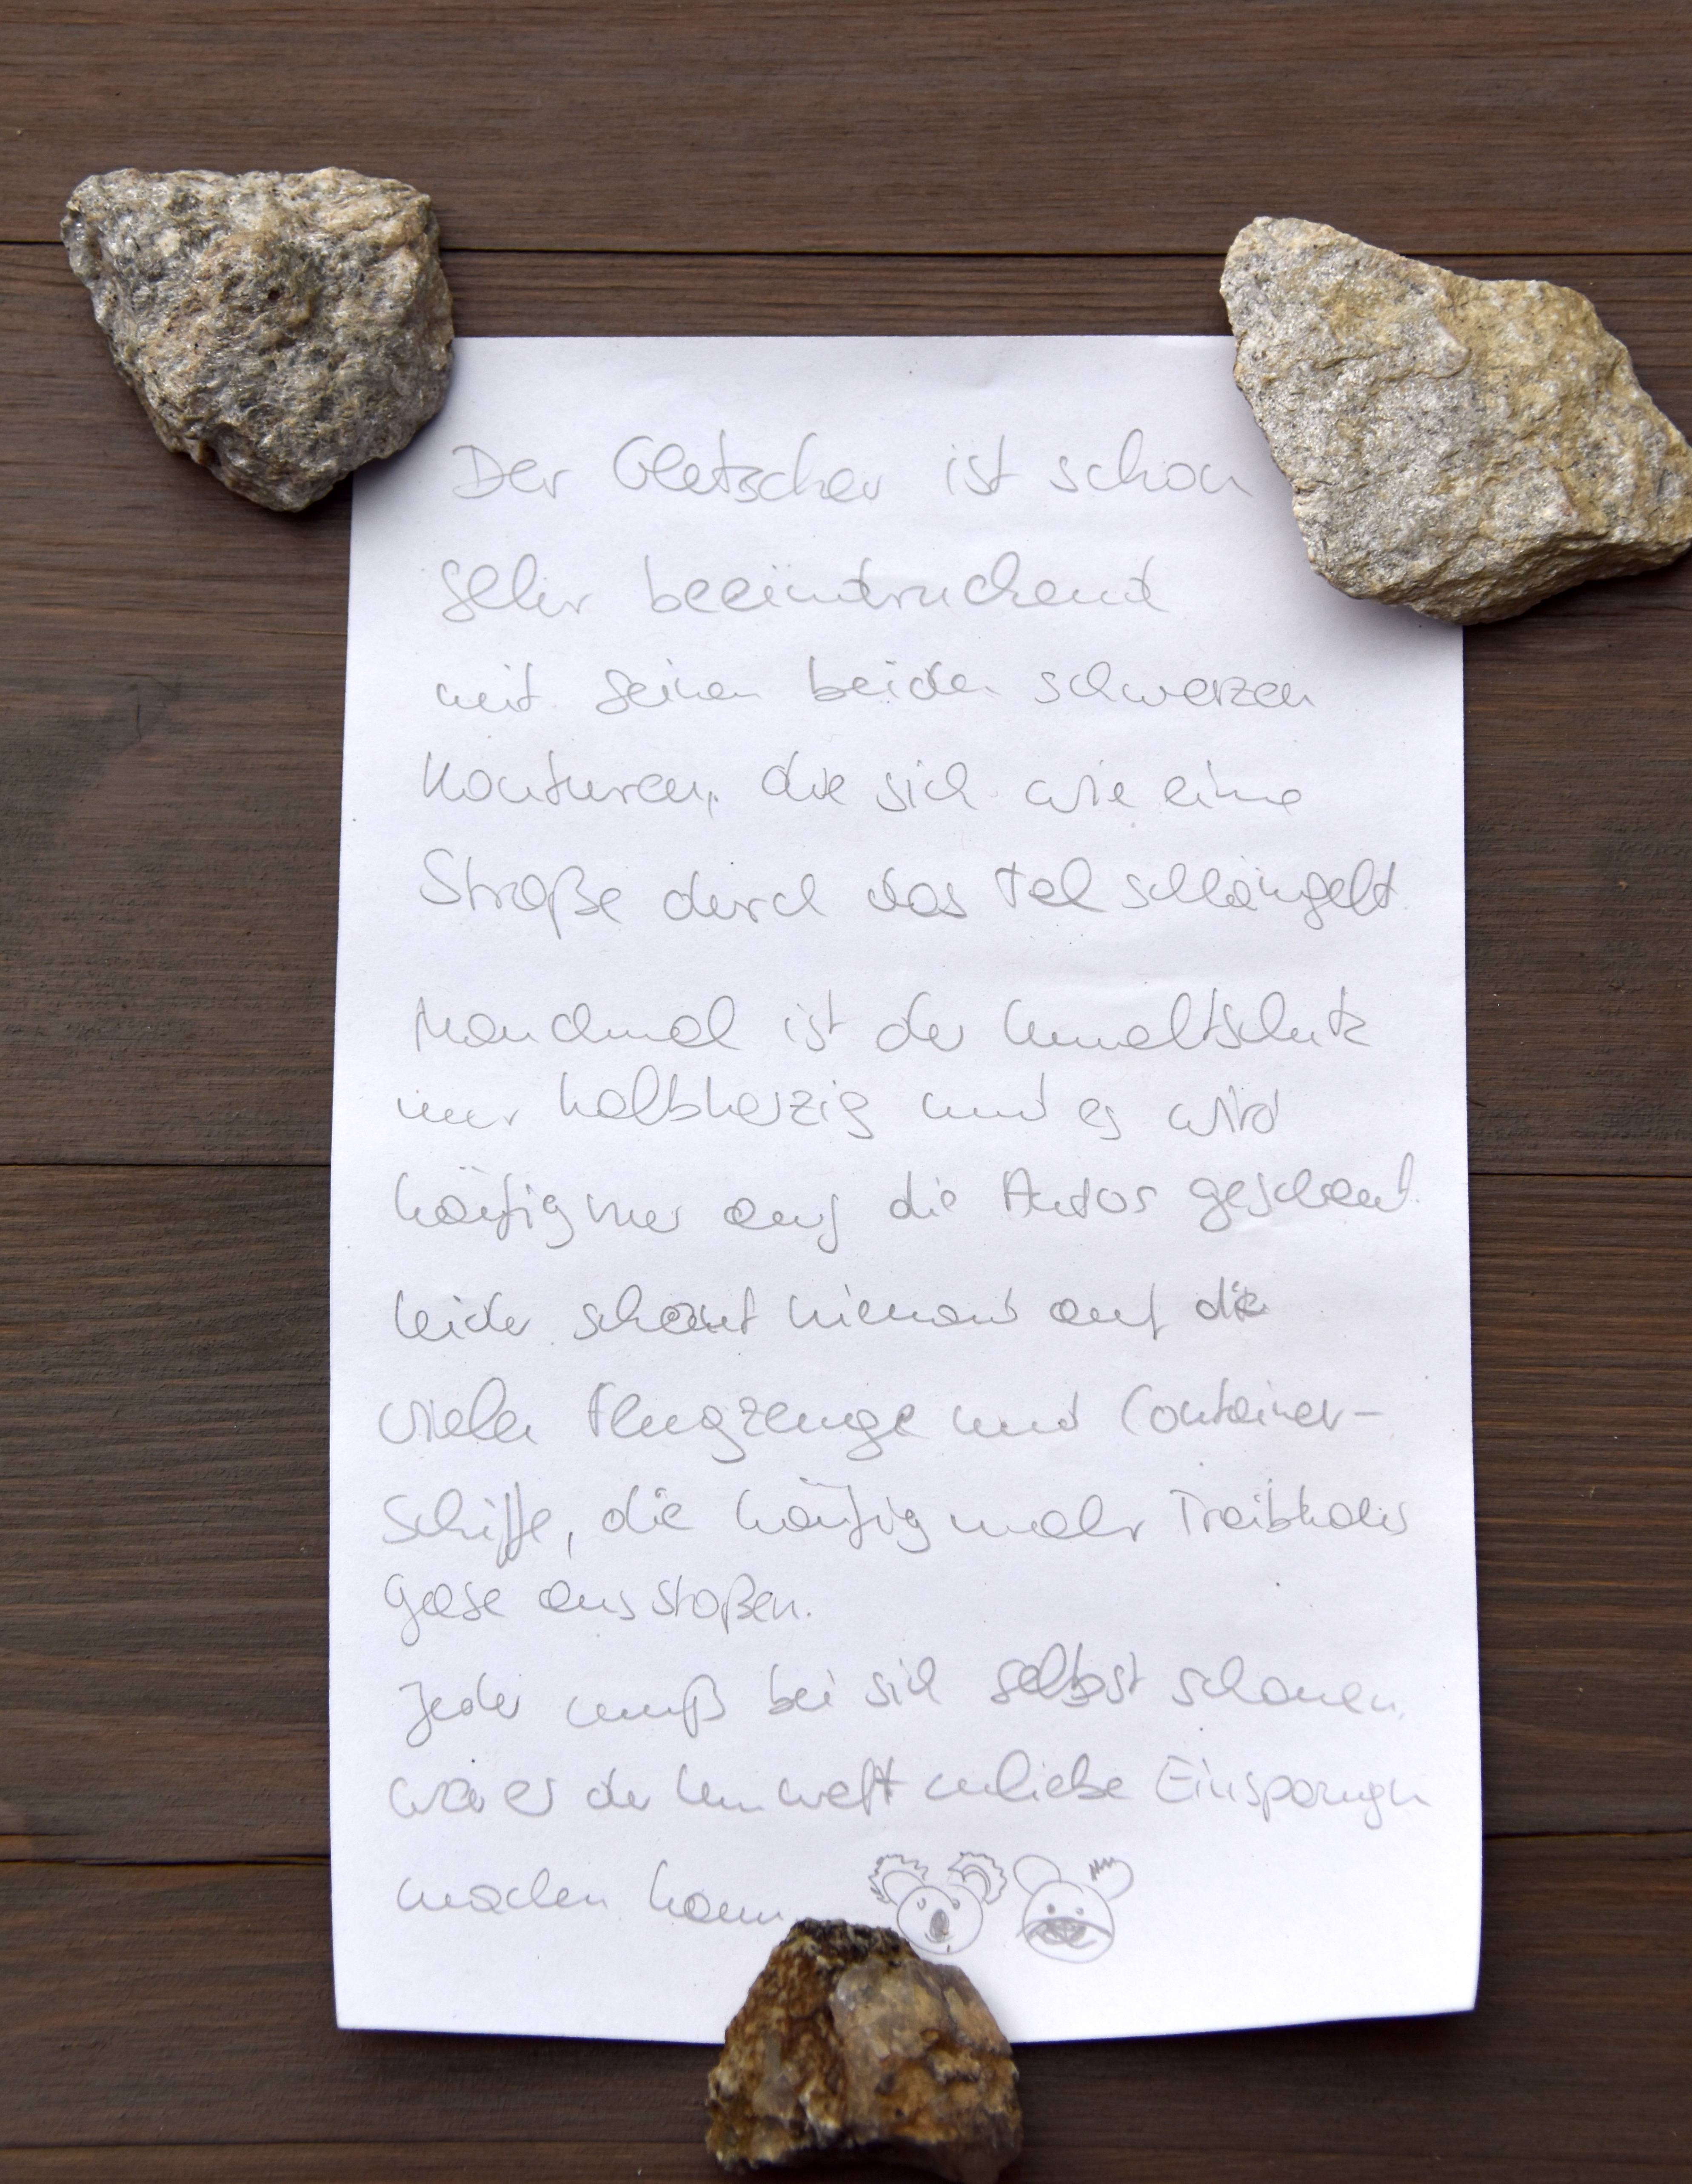 Der Gletscher ist schon
sehr beeindruckend
mit seinen beiden schwarzen
Konturen, die sich wie eine
Straße durch das Tal schlängelt
Manchmal ist der Umweltschutz
nur halbherzig und es wird
häufig nur auf die Autos geschaut.
Leider schaut niemand auf die
vielen Flugzeuge und Container-
Schiffe, die häufig mehr Treibhaus
gase ausstoßen.
Jeder muß bei sich selbst schauen,
wo er der Umwelt zuliebe Einsparungn
machen kann